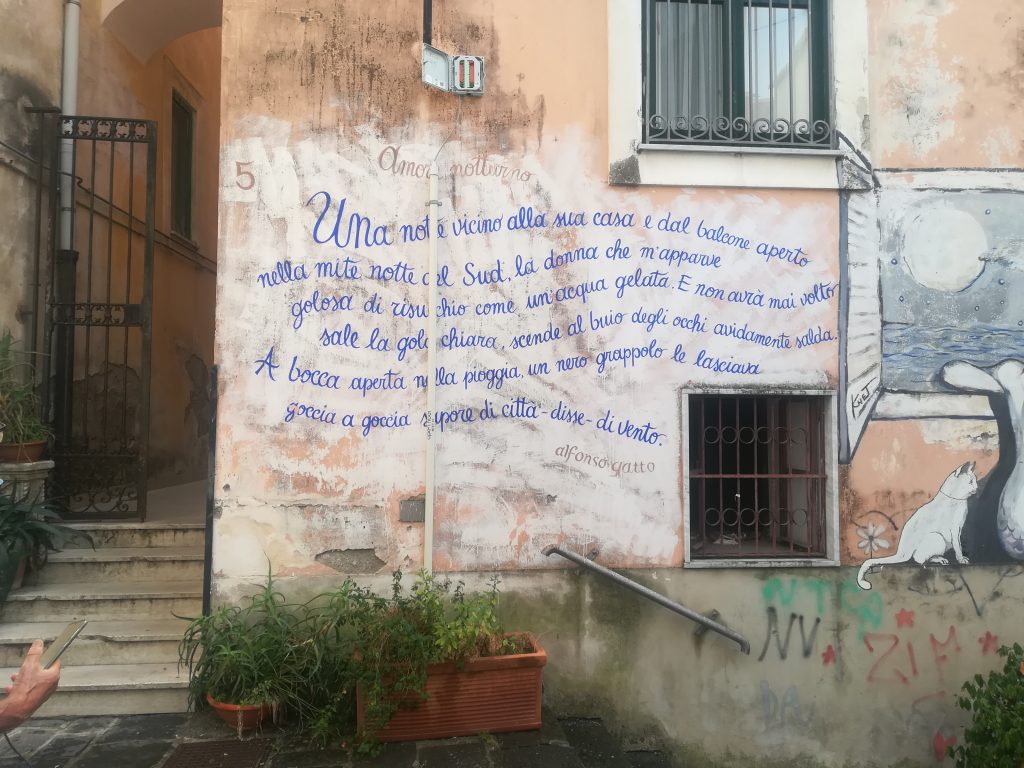 5
Amor notturno
Una notte vicino alla sua casa e dal balcone aperto
nella mite notte del Sud, la donna che m'apparve
golosa di risucchio come un'acqua gelata. E non avrà mai volto,
sale la gola chiara, scende al buio degli occhi avidamente salda.
A bocca aperta nella pioggia, un nero grappolo le lasciava
goccia a goccia sapore di città - disse - di vento.
alfonso gatto
NV
ZIF